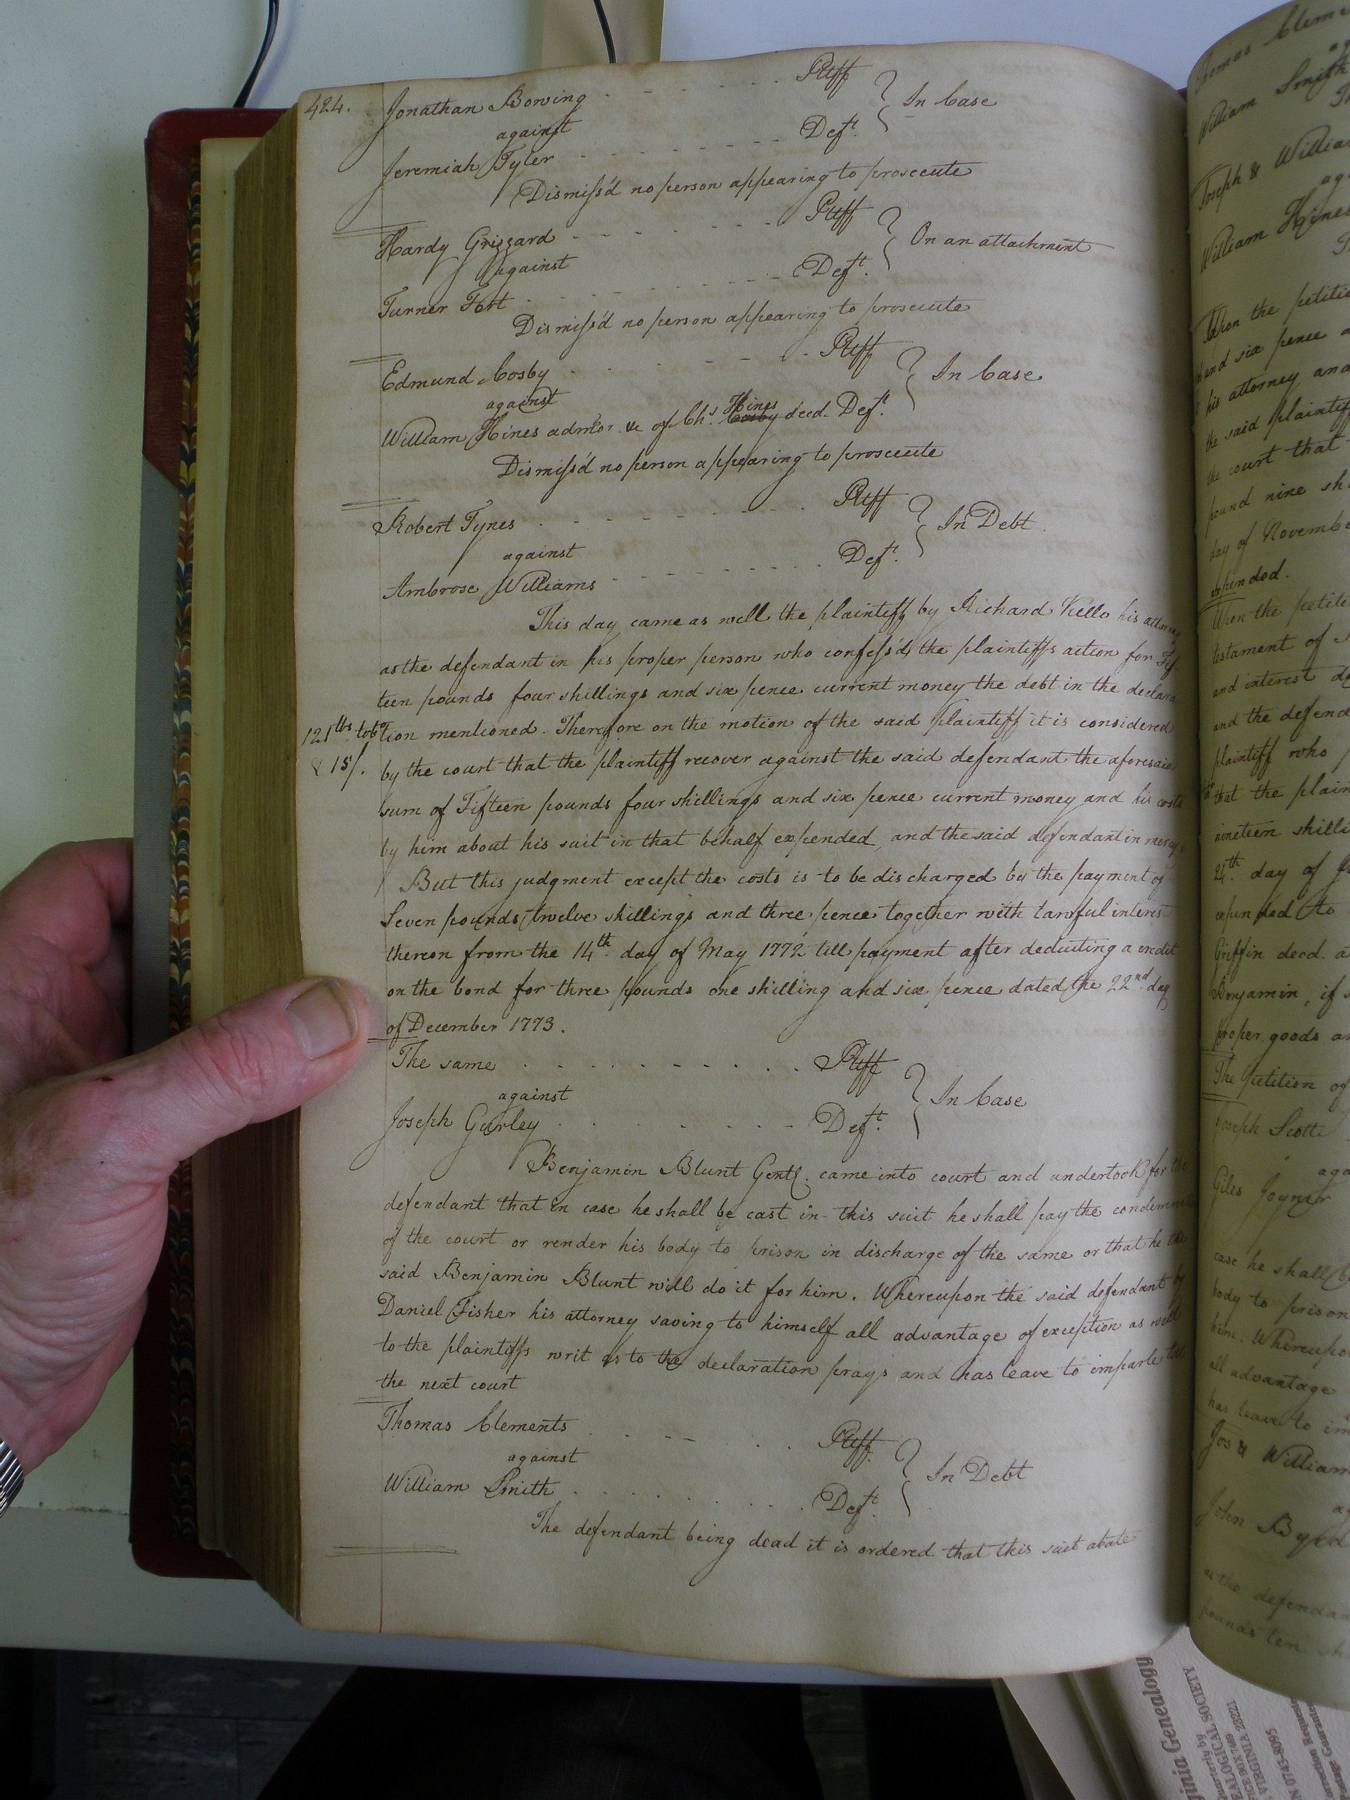 424.
Jonathan Bowing Pltff
against } In Case
Jeremiah Tyler Deft.
Dismiss'd no person appearing to prosecute
Hardy Grizzard Pltff
against } On an attachment
Turner Fort Deft.
Dismiss'd no person appearing to prosecute
Edmund Cosby Pltff
against } In Case
Hines
William Hines admor. &c of Chs. Cosby decd. Deft.
Dismiss'd no person appearing to prosecute
Robert Tynes Pltff
against } In Debt
Ambrose Williams Deft.
This day came as well the plaintiff by Richard Kello his attorney
as the defendant in his proper person who confess'd the plaintiffs action for Fif
teen pounds four shillings and six pence current money the debt in the declara
121 lbs tobo tion mentioned. Therefore on the motion of the said plaintiff it is considered
& 15/. by the court that the plaintiff recover against the said defendant the aforesaid
sum of Fifteen pounds four shillings and six pence current money and his costs
by him about his suit in that behalf expended, and the said defendant in mercy
But this judgment except the costs is to be discharged by the payment of
Seven pounds twelve shillings and three pence together with lawful interest
thereon from the 14th. day of May 1772 till payment after deducting a credit
on the bond for three pounds one shilling and six pence dated the 22nd day
of December 1773.
The same Pltff
against } In Case
Joseph Gurley Deft.
Benjamin Blunt Gentl. came into court and undertook for the
defendant that in case he shall be cast in this suit he shall pay the condemn
of the court or render his body to prison in discharge of the same or that he the
said Benjamin Blunt will do it for him. Whereupon the said defendant by
Daniel Fisher his attorney saving to himself all advantage of exception as well
to the plaintiffs writ as to the declaration prays and has leave to imparle till
the next court
Thomas Clements Pltff
against } In Debt
William Smith Deft.
The defendant being dead it is ordered that this suit abate
Thomas Clem
William Smith
Joseph & Willia
William Hines
Upon the petiti
and six pence
his attorney, and
the said plaintiff
the court that
pound nine sh
day of Novembe
expended.
Upon the petiti
testament of
and interest
and the defend
plaintiff who
that the plain
nineteen shilli
24th. day of
expended
Griffin decd.
Benjamin, if
proper goods
The Petition of
Joseph Scott
Giles Joyner
case he shall
body to prison
him. Whereupo
all advantage
has leave to im
Jos & William
John Byrd
as the defenda
pounds ten
ginia Genealogy
Quarterly by
EALOGICAL SOCIETY
VIRGINIA 23221